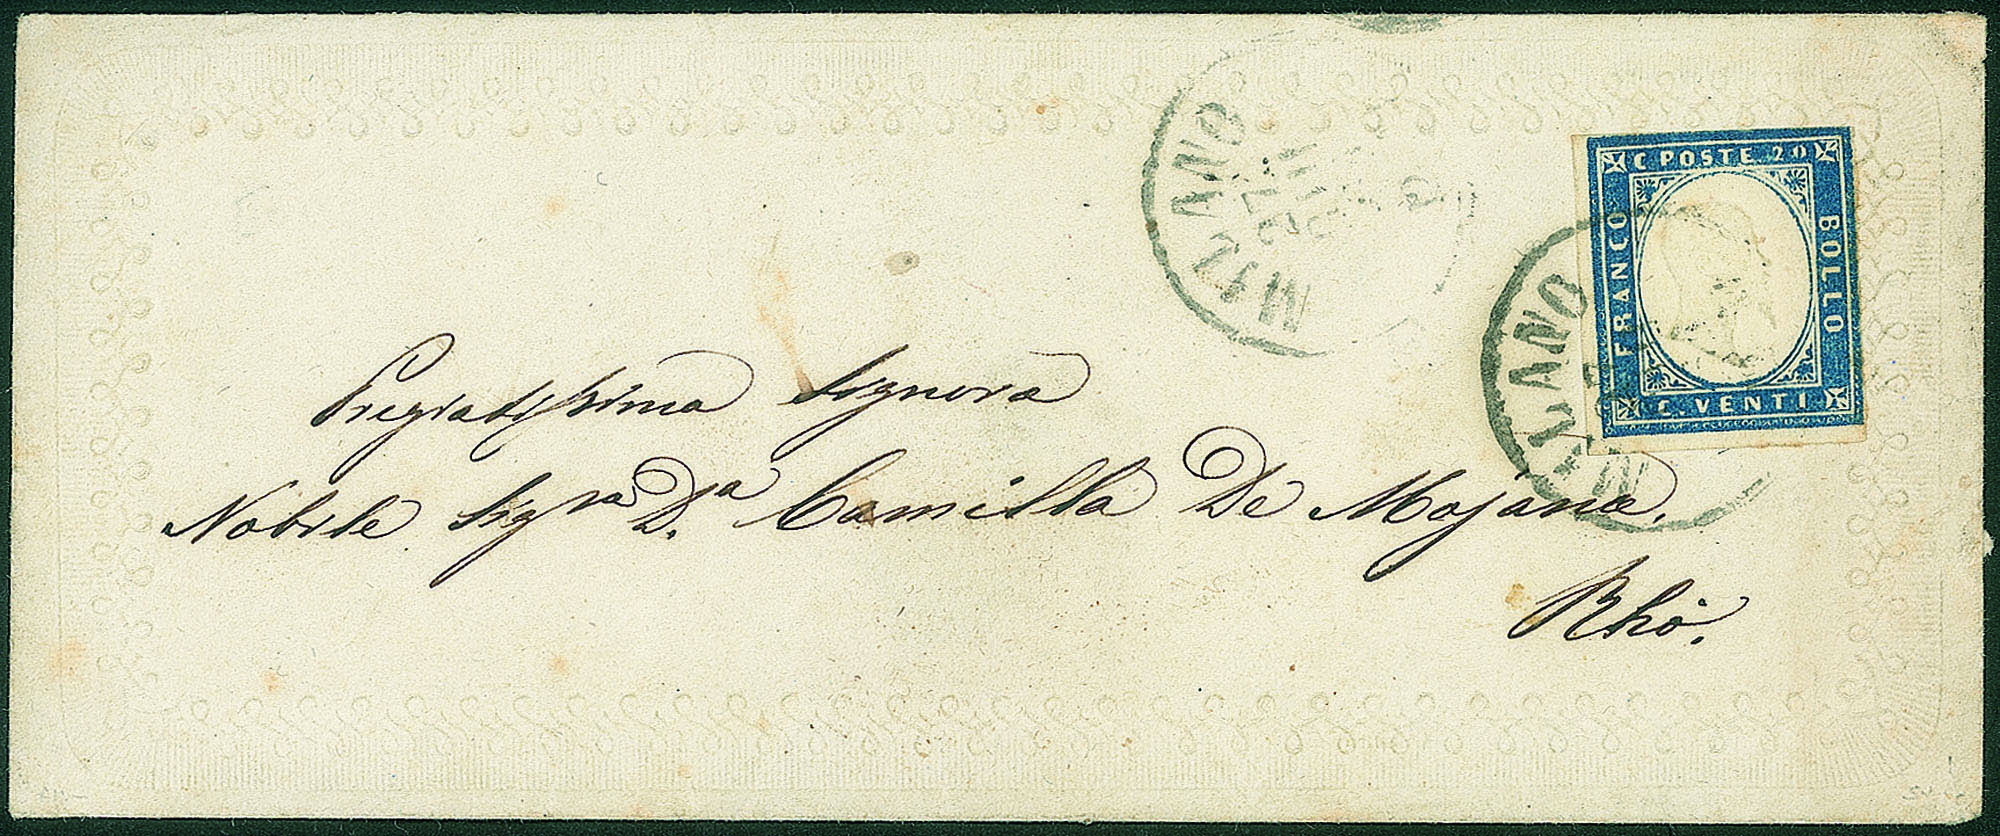 MILANO
C POSTE 20
FRANCO
BOLLO
C. VENTI
MILANO
Pregiatissima Signora
Nobile Sigra Da. Camilla De Mojana.
Rhò.